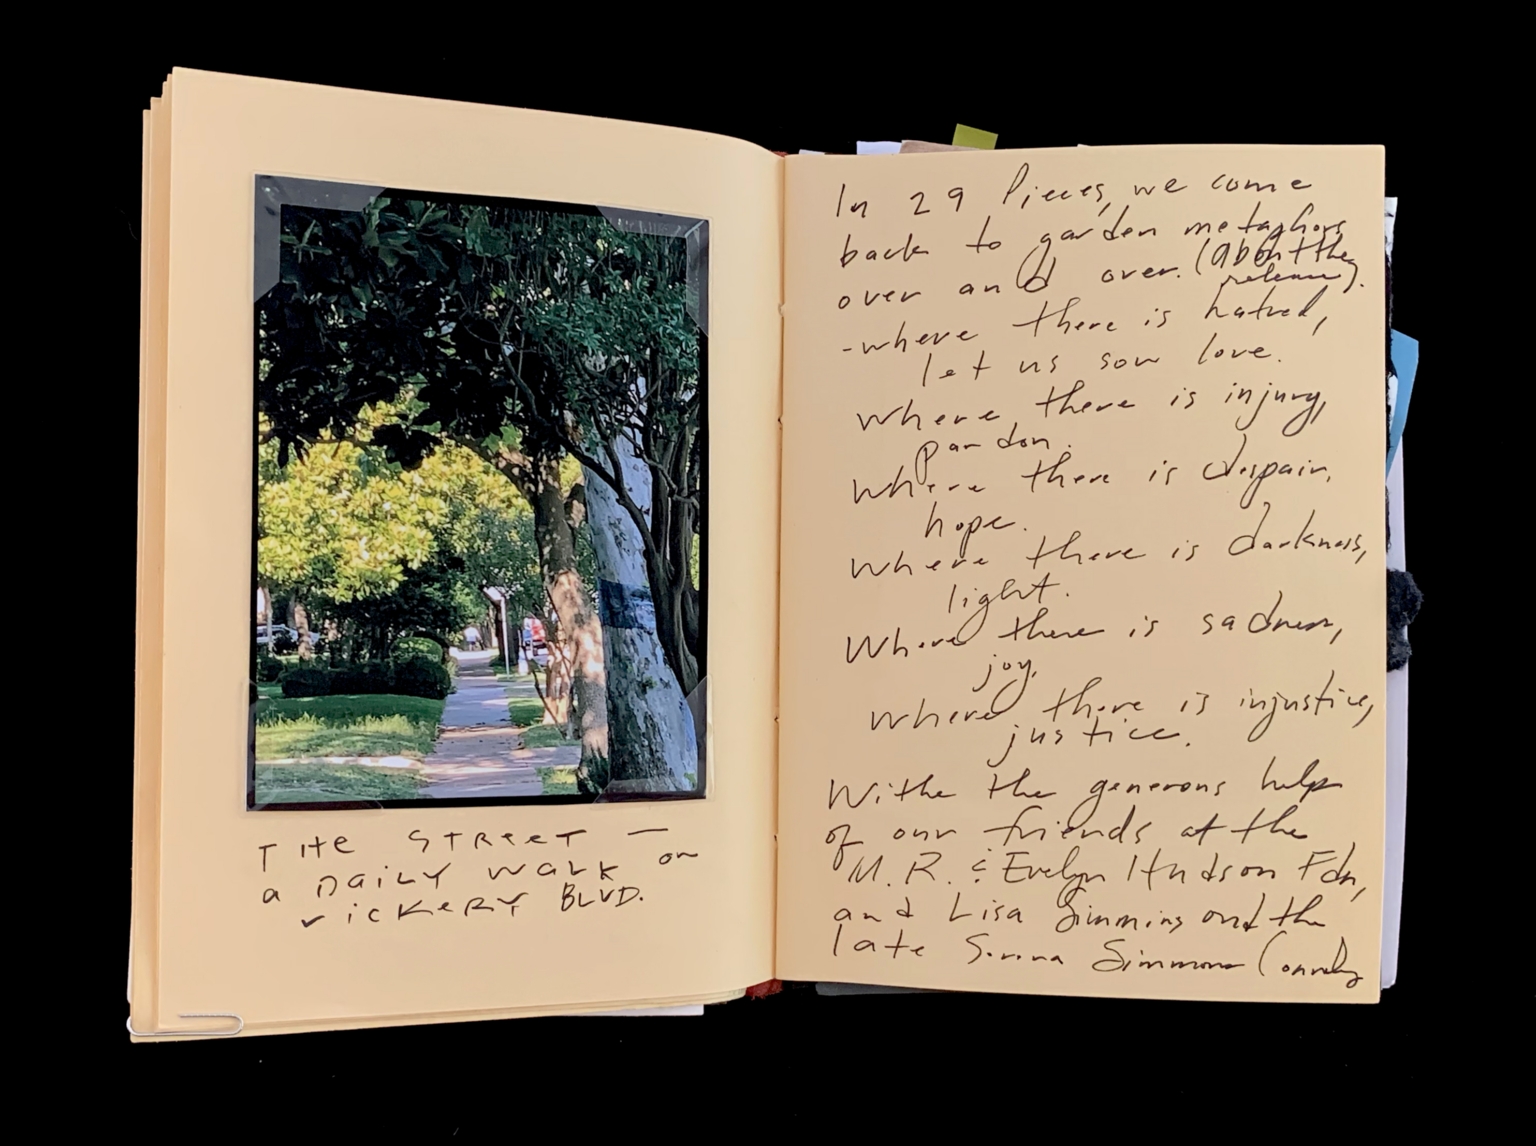 THE STREET —
a DAILY WALK on
VICKERY BLVD.
In 29 Pieces, we come
back to garden metaphors
over and over. (about the
release).
- where there is hatred,
let us sow love.
Where there is injury,
pardon.
Where there is despair,
hope.
Where there is darkness,
light.
Where there is sadness,
joy.
Where there is injustice,
justice.
Withe the generous help
of our friends at the
M.R. & Evelyn Hudson Fdn,
and Lisa Simmons and the
late Serena Simmons Connelly